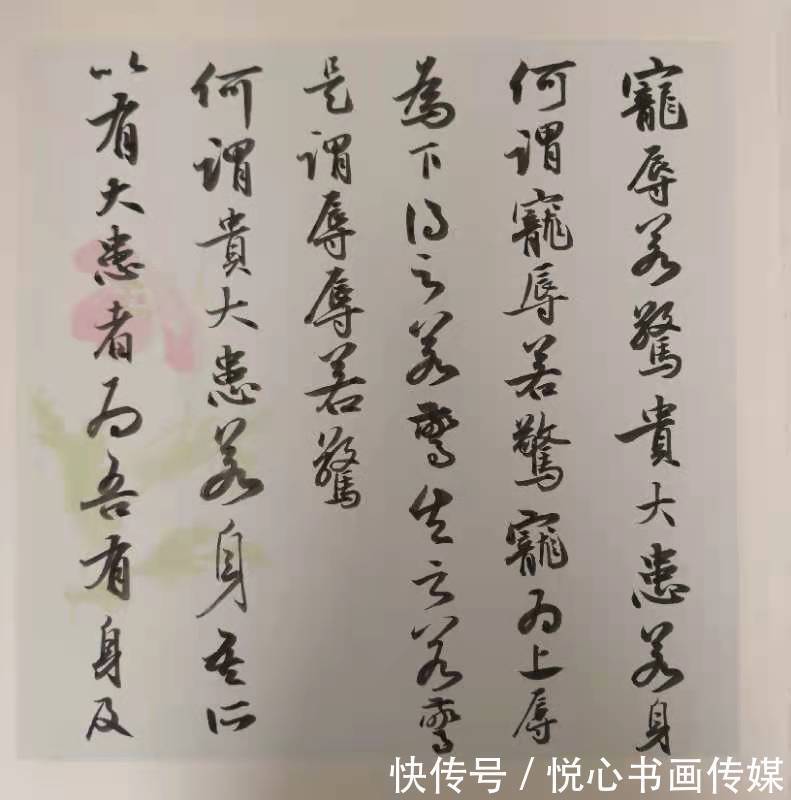 寵辱若驚貴大患若身
何謂寵辱若驚寵為上辱
為下得之若驚失之若驚
是謂辱辱若驚
何謂貴大患若身吾所
以有大患者為吾有身及
快传号 / 悦心书画传媒